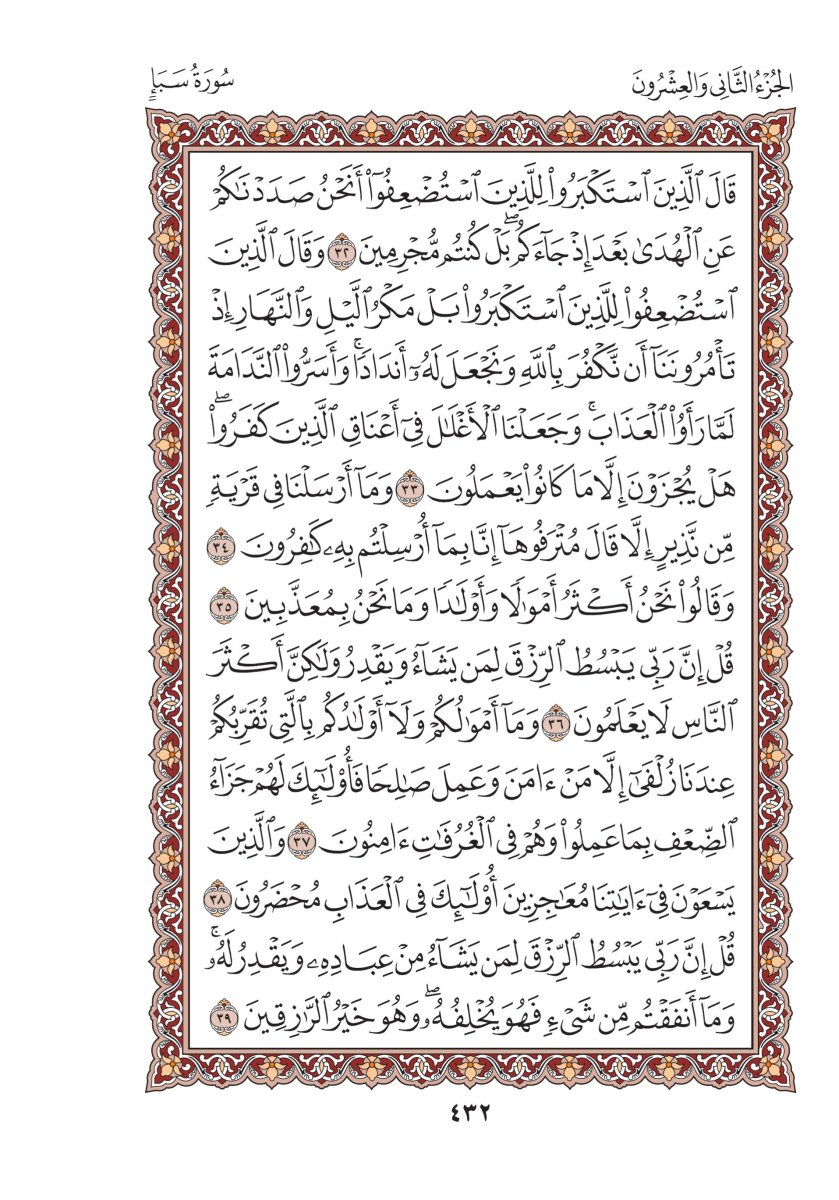 الجُزْءُ الثَّانِي وَالعِشْرُونَ
سُورَةُ سَبَإٍ
قَالَ ٱلَّذِينَ ٱسْتَكْبَرُوا۟ لِلَّذِينَ ٱسْتُضْعِفُوٓا۟ أَنَحْنُ صَدَدْنَـٰكُمْ
عَنِ ٱلْهُدَىٰ بَعْدَ إِذْ جَآءَكُمۖ بَلْ كُنتُم مُّجْرِمِينَ ٣٢ وَقَالَ ٱلَّذِينَ
ٱسْتُضْعِفُوا۟ لِلَّذِينَ ٱسْتَكْبَرُوا۟ بَلْ مَكْرُ ٱلَّيْلِ وَٱلنَّهَارِ إِذْ
تَأْمُرُونَنَآ أَن نَّكْفُرَ بِٱللَّهِ وَنَجْعَلَ لَهُۥٓ أَندَادًاۚ وَأَسَرُّوا۟ ٱلنَّدَامَةَ
لَمَّا رَأَوُا۟ ٱلْعَذَابَۚ وَجَعَلْنَا ٱلْأَغْلَـٰلَ فِىٓ أَعْنَاقِ ٱلَّذِينَ كَفَرُوا۟ۖ
هَلْ يُجْزَوْنَ إِلَّا مَا كَانُوا۟ يَعْمَلُونَ ٣٣ وَمَآ أَرْسَلْنَا فِى قَرْيَةٍ
مِّن نَّذِيرٍ إِلَّا قَالَ مُتْرَفُوهَآ إِنَّا بِمَآ أُرْسِلْتُم بِهِۦ كَـٰفِرُونَ ٣٤
وَقَالُوا۟ نَحْنُ أَكْثَرُ أَمْوَٰلًا وَأَوْلَـٰدًا وَمَا نَحْنُ بِمُعَذَّبِينَ ٣٥
قُلْ إِنَّ رَبِّى يَبْسُطُ ٱلرِّزْقَ لِمَن يَشَآءُ وَيَقْدِرُ وَلَـٰكِنَّ أَكْثَرَ
ٱلنَّاسِ لَا يَعْلَمُونَ ٣٦ وَمَآ أَمْوَٰلُكُمْ وَلَآ أَوْلَـٰدُكُم بِٱلَّتِى تُقَرِّبُكُمْ
عِندَنَا زُلْفَىٰٓ إِلَّا مَنْ ءَامَنَ وَعَمِلَ صَـٰلِحًا فَأُو۟لَـٰٓئِكَ لَهُمْ جَزَآءُ
ٱلضِّعْفِ بِمَا عَمِلُوا۟ وَهُمْ فِى ٱلْغُرُفَـٰتِ ءَامِنُونَ ٣٧ وَٱلَّذِينَ
يَسْعَوْنَ فِىٓ ءَايَـٰتِنَا مُعَـٰجِزِينَ أُو۟لَـٰٓئِكَ فِى ٱلْعَذَابِ مُحْضَرُونَ ٣٨
قُلْ إِنَّ رَبِّى يَبْسُطُ ٱلرِّزْقَ لِمَن يَشَآءُ مِنْ عِبَادِهِۦ وَيَقْدِرُ لَهُۥۚ
وَمَآ أَنفَقْتُم مِّن شَىْءٍ فَهُوَ يُخْلِفُهُۥۖ وَهُوَ خَيْرُ ٱلرَّٰزِقِينَ ٣٩
٤٣٢